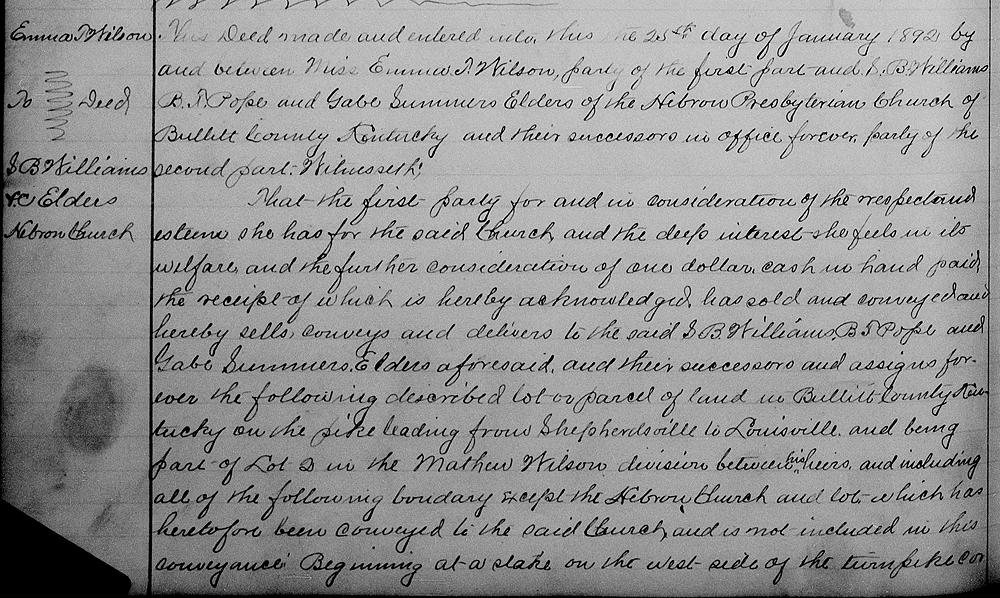 Emma T Wilson
To Deed
S B Williams
&c Elders
Hebron Church
This Deed made and entered into, this the 25th day of January 1892 by
and between Miss Emma T. Wilson, party of the first part and S. B. Williams
B. T. Pope and Gabe Summers Elders of the Hebron Presbyterian Church of
Bullitt County Kentucky and their successors in office forever, party of the
second part. Witnesseth;
That the first party for and in consideration of the respect and
esteem she has for the said Church, and the deep interest she feels in its
welfare, and the further consideration of one dollar, cash in hand paid,
the receipt of which is hereby acknowledged, has sold and conveyed and
hereby sells, conveys and delivers to the said S. B. Williams, B. T. Pope and
Gabe Summers, Elders aforesaid, and their successors and assigns for-
ever the following described lot or parcel of land in Bullitt County Ken-
tucky on the pike leading from Shepherdsville to Louisville, and being
part of Lot D in the Mathew Wilson division between his heirs, and including
all of the following boundary except the Hebron Church and lot which has
heretofore been conveyed to the said Church, and is not included in this
conveyance: Beginning at a stake on the west side of the turnpike cor